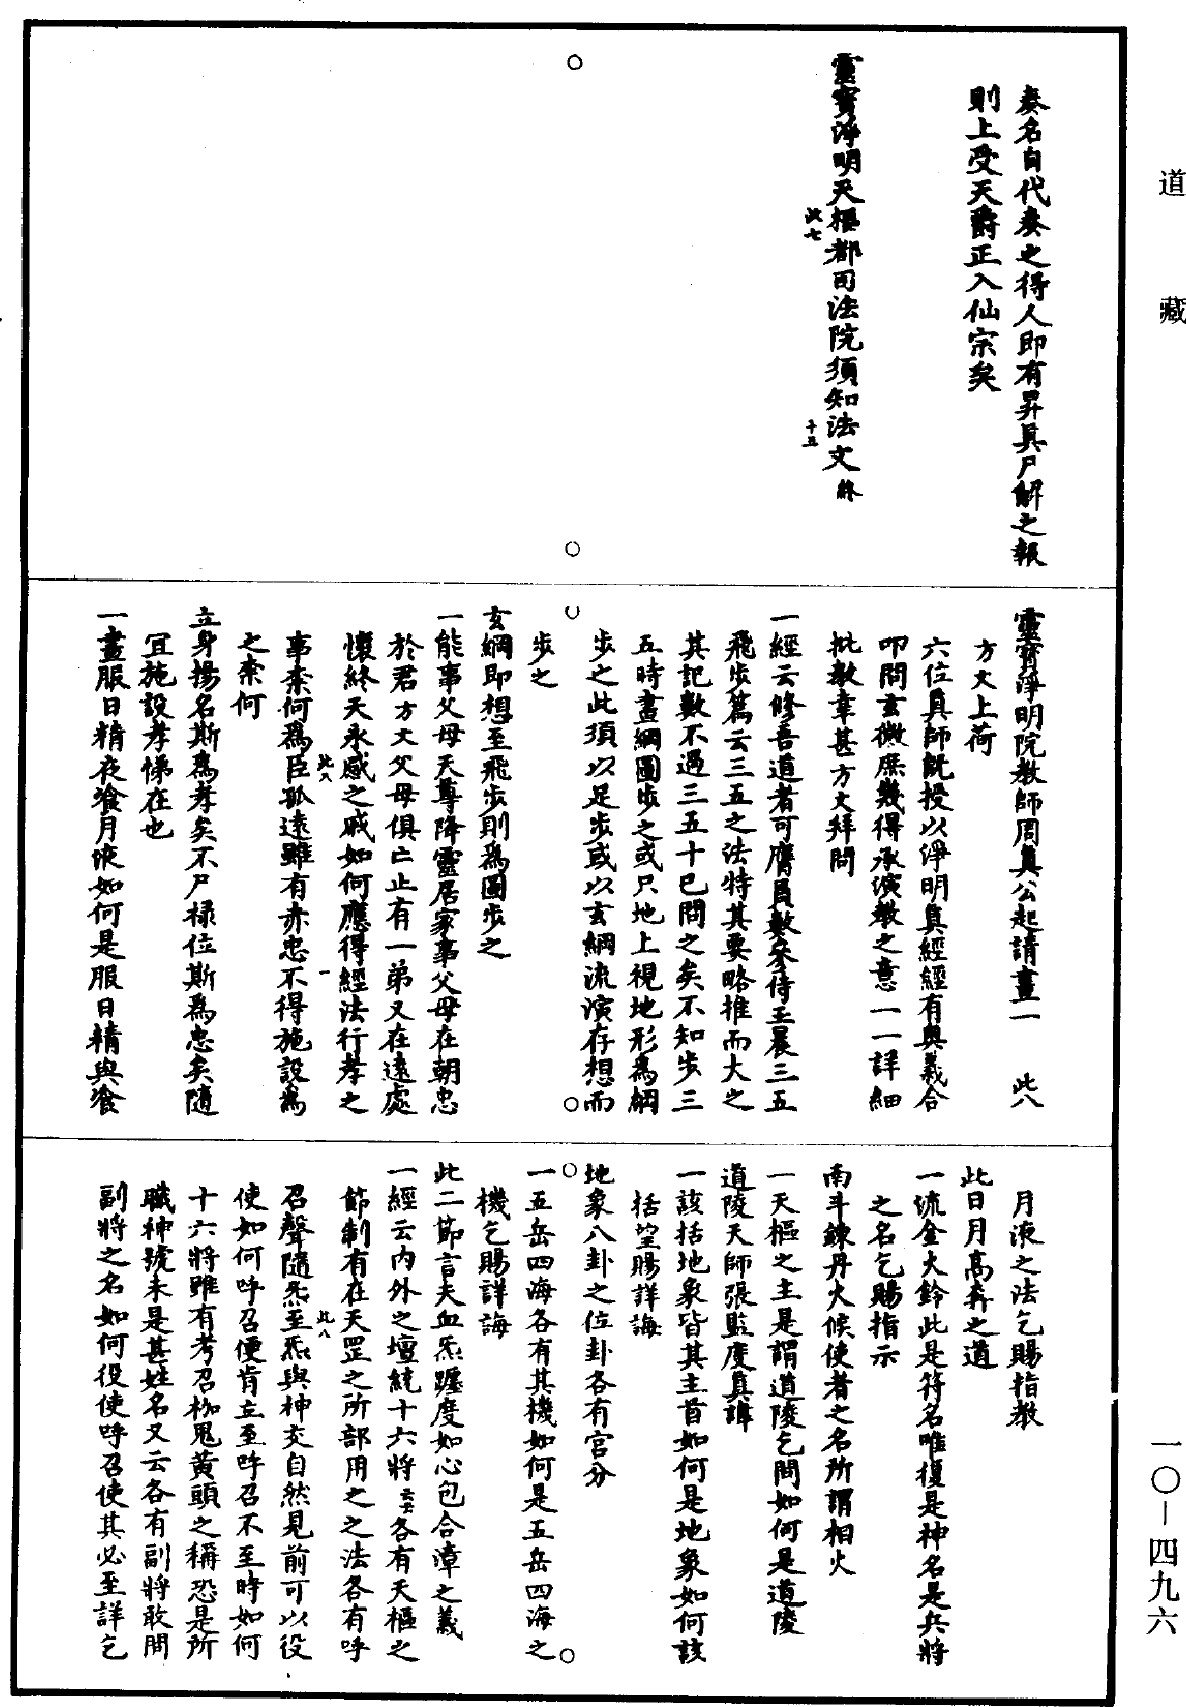 道藏
奏名自代奏之得人即有昇真尸解之報
則上受天爵正入仙宗矣
靈寳淨明天樞都司法院須知法文終
此七
十五
靈寳淨明院教師周真公起請畫一 此八
方文上荷
六位真師既授以淨明真經經有奥義合
叩問玄微庶幾得承演教之意一一詳細
批教幸甚方文拜問
一經云修吾道者可膺員數參侍玉晨三五
飛步篇云三五之法特其要略推而大之
其記數不過三五十已問之矣不知步三
五時畫綱圖步之或只地上視地形爲綱
步之此須以足步或以玄綱流演存想而
步之
玄綱即想至飛步則爲圖步之
一能事父母天尊降靈居家事父母在朝忠
於君方文父母俱亡止有一弟又在遠處
懷終天永慼之戚如何應得經法行孝之
一
事柰何爲臣孤遠雖有赤忠不得施設爲
此八
之柰何
立身揚名斯爲孝矣不尸禄位斯爲忠矣隨
宜施設孝悌在也
一晝服日精夜飡月液如何是服日精與飡
月液之法乞賜指教
此日月高奔之道
一流金火鈴此是符名唯復是神名是兵將
之名乞賜指示
南斗鍊丹火候使者之名所謂相火
一天樞之主是謂道陵乞問如何是道陵
道陵天師張監度真諱
一該括地象皆其主首如何是地象如何該
括望賜詳誨
地象八卦之位卦各有宮分
一五岳四海各有其機如何是五岳四海之
機乞賜詳誨
此二節言夫血炁躔度如心包合漳之義
一經云内外之壇純十六將各有天樞之
節制有在天罡之所部用之之法各有呼
召聲隨炁至炁與神交自然見前可以役
此八
使如何呼召便肯立至呼召不至時如何
十六將雖有考召枷鬼黄頭之稱恐是所
職神號未是甚姓名又云各有副將敢問
副將之名如何役使呼召使其必至詳乞
一〇—四九六